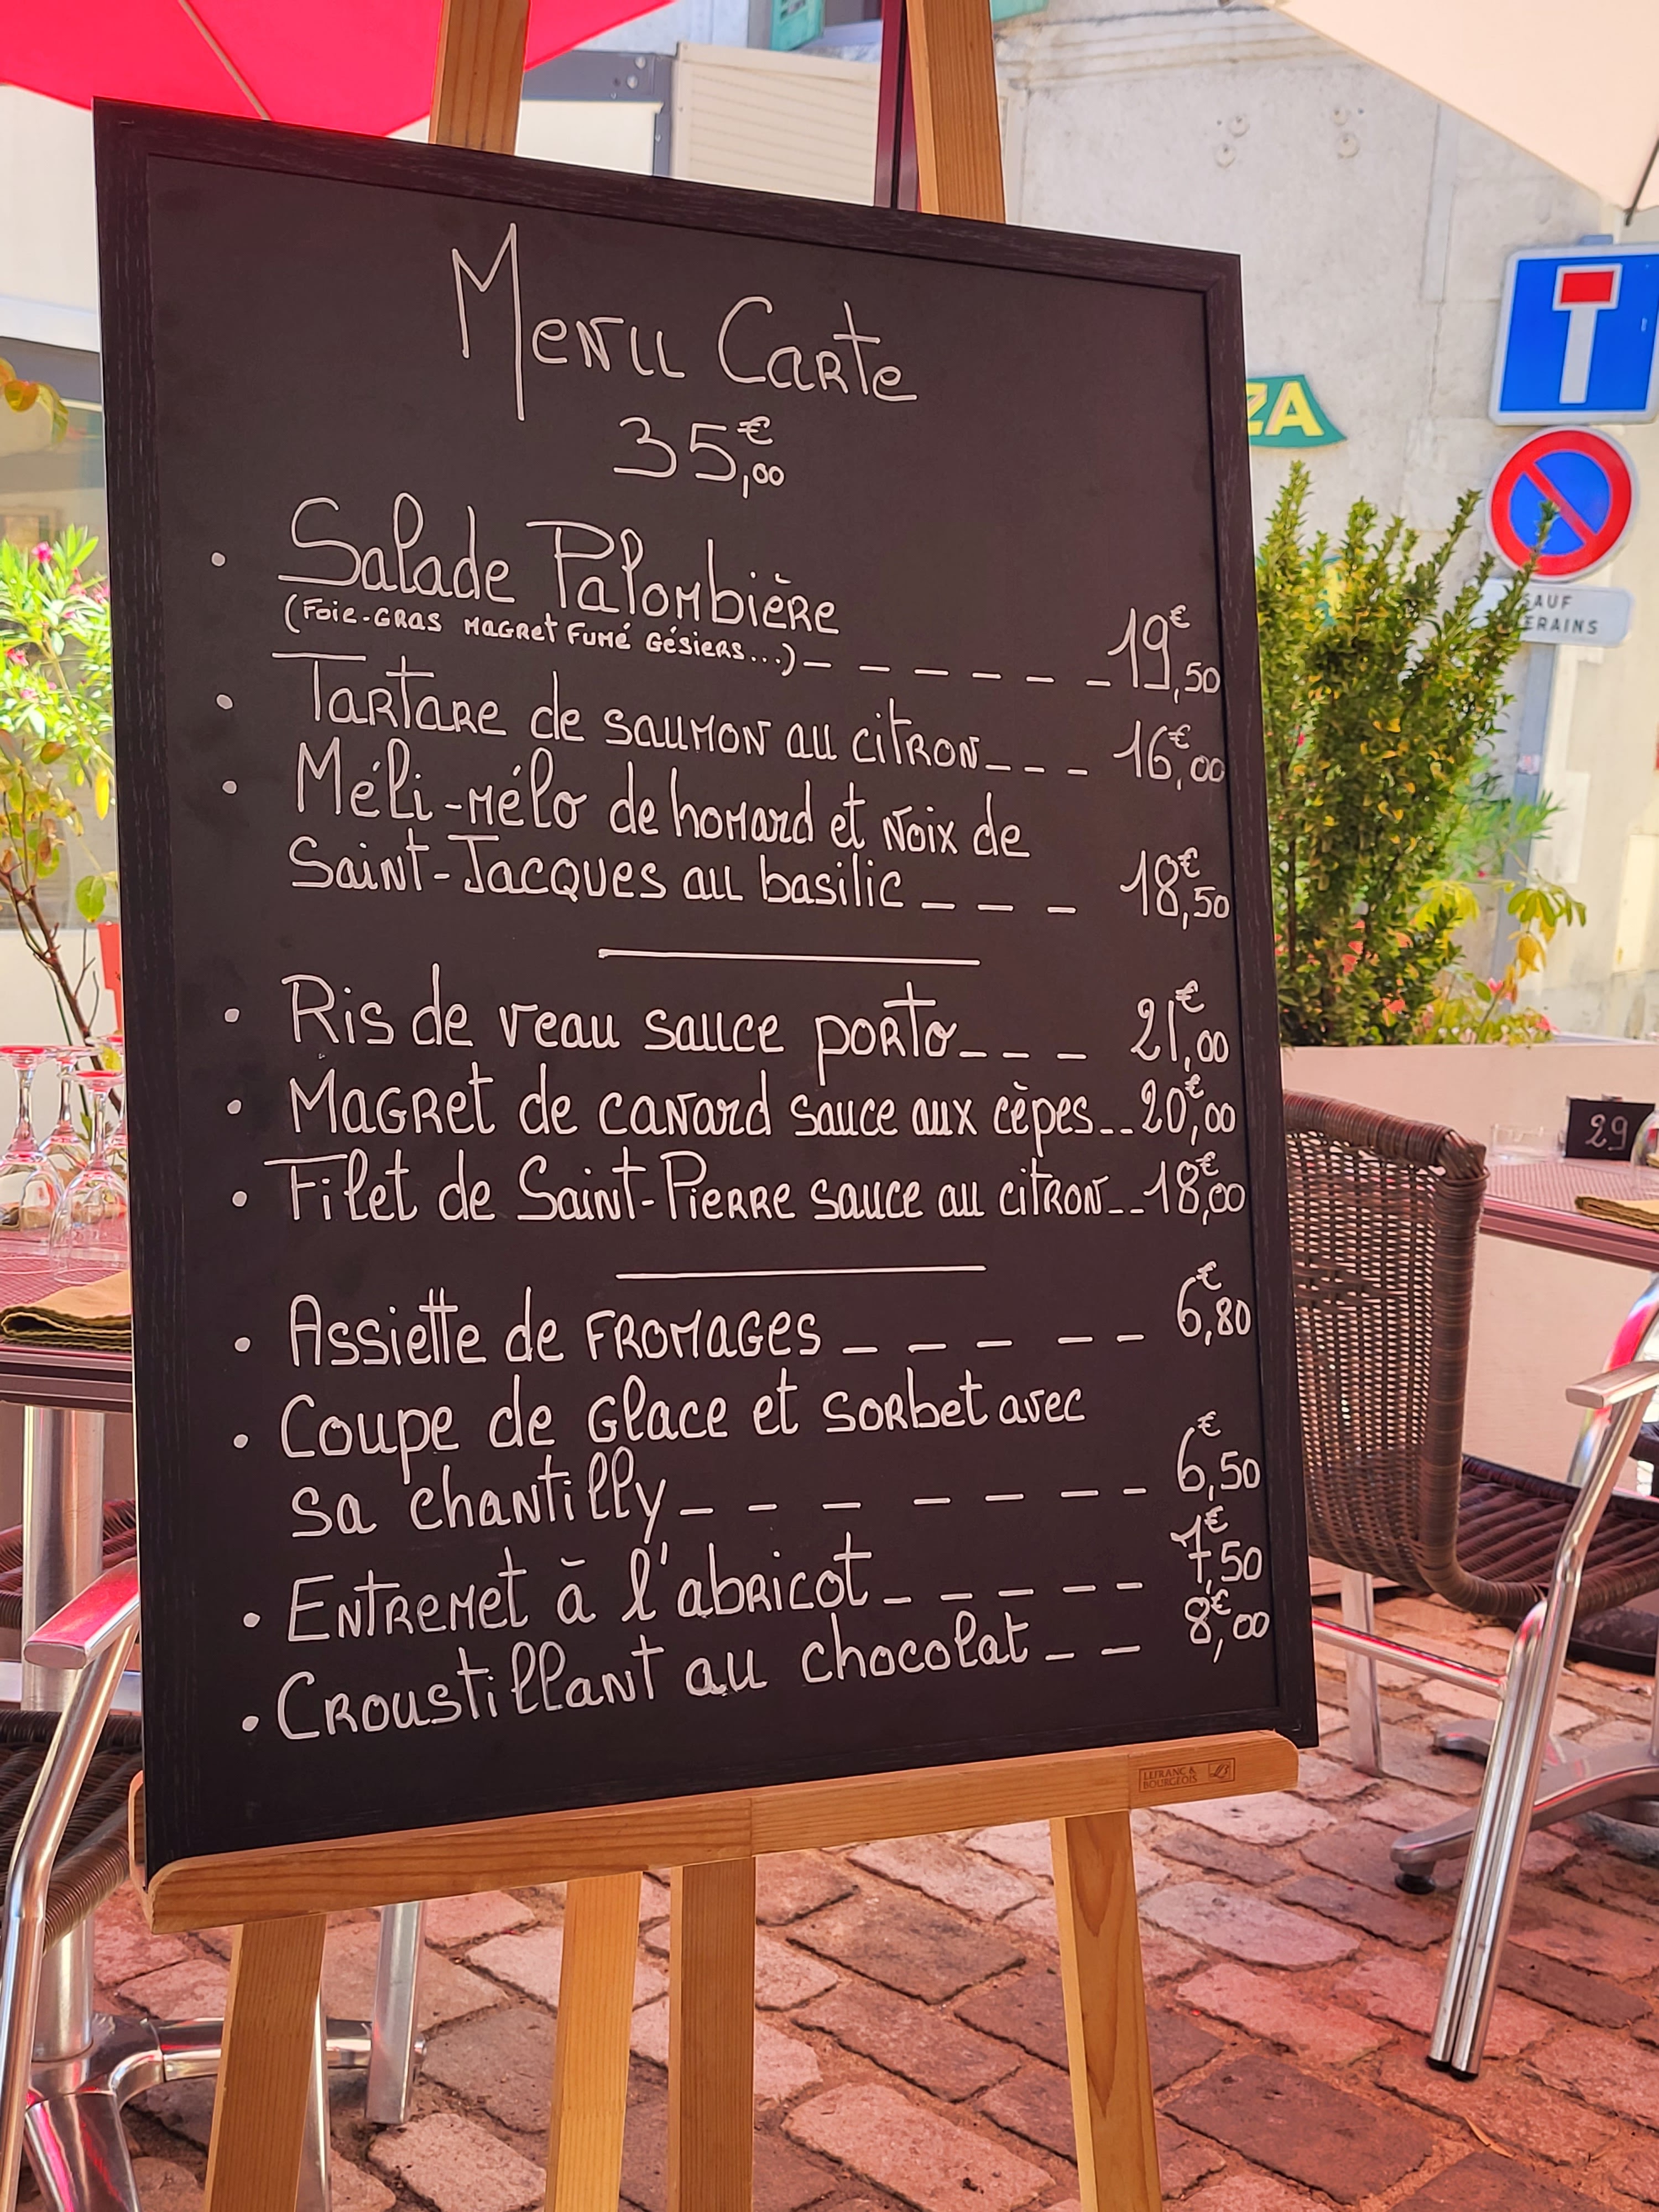 Menu Carte
35,00€
• Salade Palombière
(Foie-gras magret fumé gésiers...)_ _ _ _ _ _ 19,50€
• Tartare de saumon au citron_ _ _ 16,00€
• Méli-mélo de homard et noix de
Saint-Jacques au basilic _ _ _ 18,50€
• Ris de veau sauce porto_ _ _ 21,00€
• Magret de canard sauce aux cèpes_ _ 20,00€
• Filet de Saint-Pierre sauce au citron_ _ 18,00€
• Assiette de fromages _ _ _ _ _ 6,80€
• Coupe de glace et sorbet avec
sa chantilly_ _ _ _ _ _ _ 6,50€
• Entremet à l'abricot_ _ _ _ _ 7,50€
• Croustillant au chocolat_ _ 8,00€
LEFRANC &
BOURGEOIS
ZA
SAUF
ERAINS
29